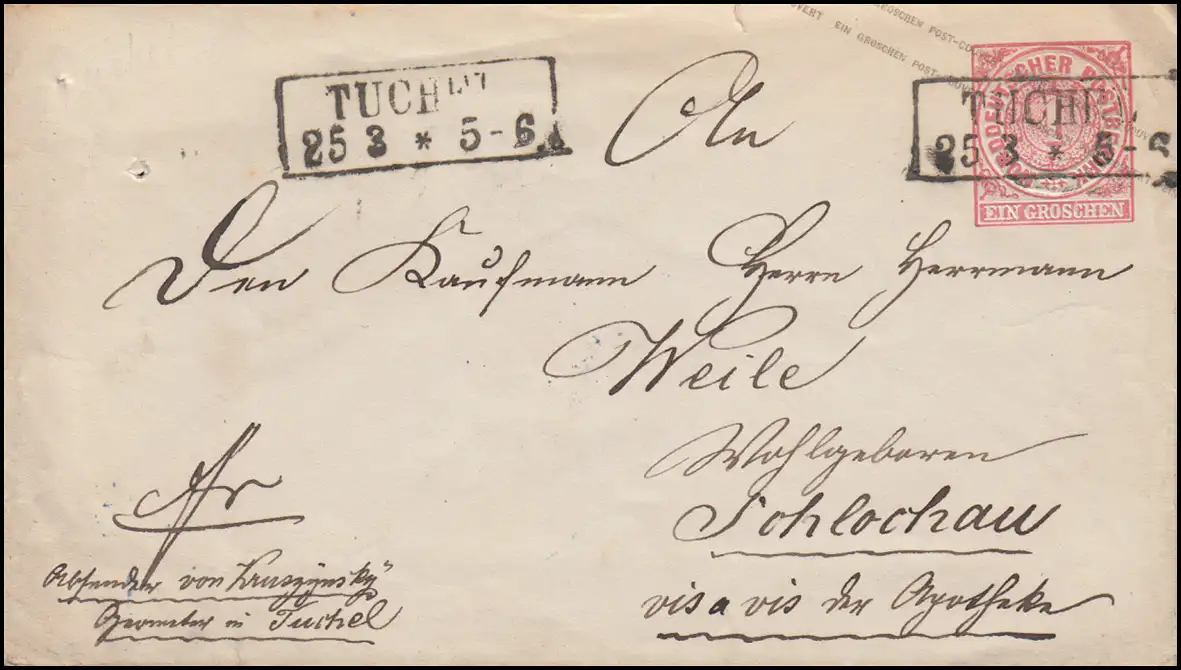 EIN GROSCHEN POST-COUVERT
TUCHEL
25 3 * 5-6 A
TUCHEL
25 3 * 5-6
NORDDEUTSCHER POSTBEZIRK
1
EIN GROSCHEN
An
Den Kaufmann Herrn Herrmann
Weile
Wohlgeboren
Schlochau
vis a vis der Apotheke
Fr
Absender von Kruszynsky
Geometer in Tuchel